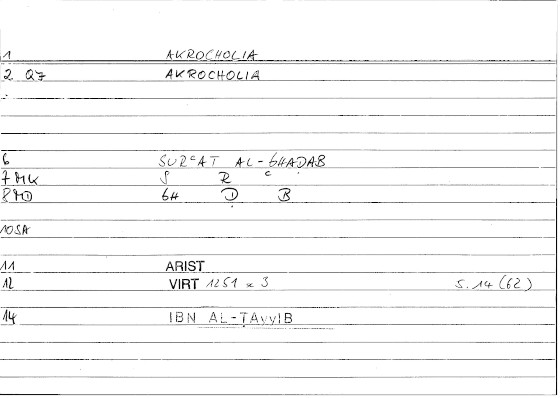 1 AKROCHOLIA
2 Q7 AKROCHOLIA
6 SURʿAT AL-GHAḌAB
7 MK S R ʿ
8 MD GH Ḍ B
10 SA
11 ARIST
12 VIRT 1251 a 3 S. 14 (62)
14 IBN AL-ṬAYYIB